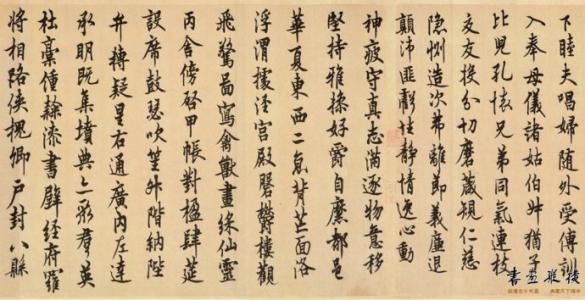 下睦夫唱婦隨外受傅訓
入奉母儀諸姑伯叔猶子
比兒孔懷兄弟同氣連枝
交友投分切磨箴規仁慈
隱惻造次弗離節義廉退
顛沛匪虧性靜情逸心動
神疲守真志滿逐物意移
堅持雅操好爵自縻都邑
華夏東西二京背芒面洛
浮渭據涇宮殿磐欝樓觀
飛驚啚寫禽獸畫綵仙靈
丙舍傍啓甲帳對楹肆筵
設席鼓瑟吹笙升階納陛
弁轉疑星右通廣內左達
承明既集墳典亦聚群英
杜稾鍾隸漆書壁經府羅
將相路俠槐卿戶封八縣